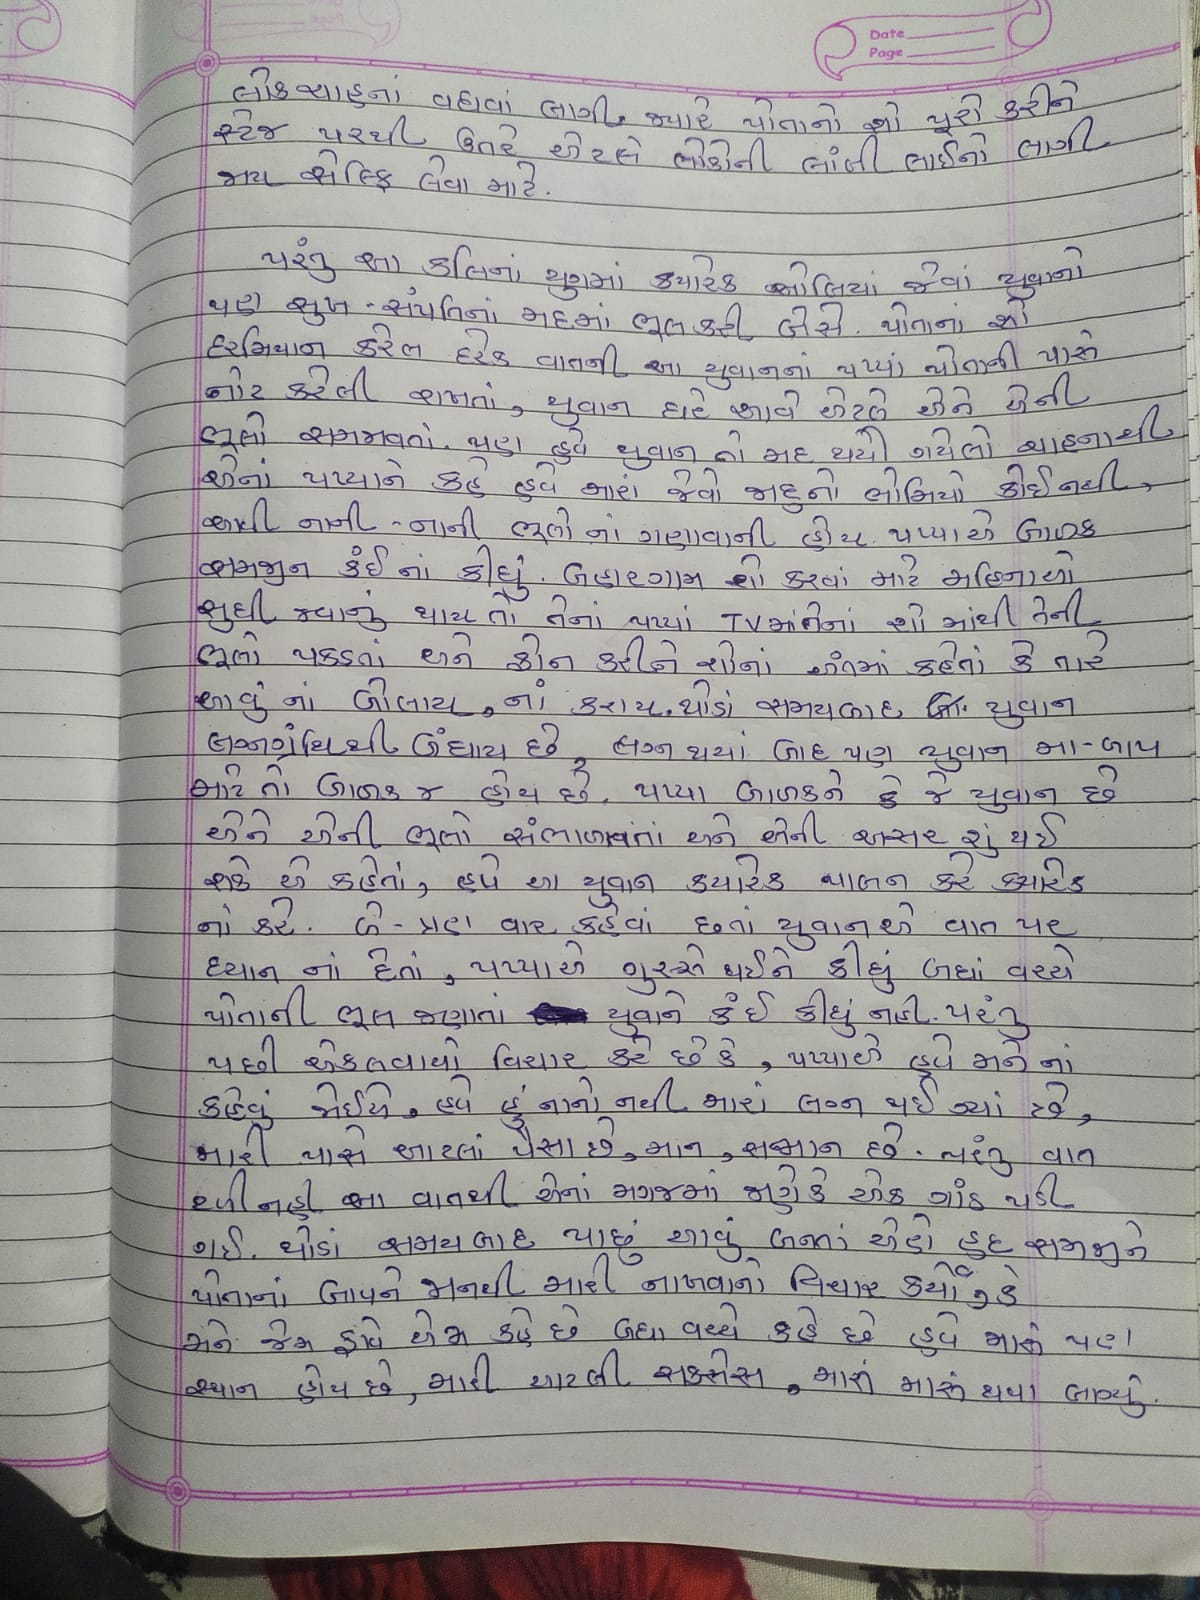 Date
Page
લોકચાહનાં વધવાં લાગી. જ્યારે પોતાનો શો પૂરો કરીને
સ્ટેજ પરથી ઉતરે એટલે લોકોની લાંબી લાઈનો લાગી
જાય સેલ્ફિ લેવા માટે.
પરંતુ આ કલિનાં યુગમાં ક્યારેક ઓલિયાં જેવાં યુવાનો
પણ સુખ-સંપતિનાં મદમાં ભૂલ કરી બેસે. પોતાનાં શો
દરમિયાન કરેલ દરેક વાતની આ યુવાનનાં પપ્પાં પોતાની પાસે
નોટ કરેલી રાખતાં, યુવાન ઘરે આવે એટલે એને એની
ભૂલો સમજાવતાં. પણ હવે યુવાન તો મદ થયી ગયેલો ચાહનાથી
એનાં પપ્પાને કહે હવે મારાં જેવો જાદુનો ભોમિયો કોઈ નથી,
નાની-નાની ભૂલો નાં ગણાવાની હોય. પપ્પાએ બાળક
સમજીન કંઈ નાં કીધું. બહારગામ શો કરવાં માટે મહિનાઓ
સુધી જવાનું થાય તો તેનાં પપ્પાં TVમાં તેનાં શો માંથી તેની
ભૂલો પકડતાં અને ફોન કરીને શોનાં અંતમાં કહેતાં કે તારે
આવું નાં બોલાય, નાં કરાય. થોડાં સમય બાદ યુવાન
લગ્નગ્રંથિથી બંધાય છે, લગ્ન થયાં બાદ પણ યુવાન મા-બાપ
માટે તો બાળક જ હોય છે. પપ્પા બાળકને કે જે યુવાન છે
એને એની ભૂલો સંભાળાવતાં અને એની અસર શું થઈ
શકે એ કહેતાં, હવે આ યુવાન ક્યારેક પાલન કરે ક્યારેક
નાં કરે. બે-ત્રણ વાર કહેવાં છતાં યુવાન એ વાત પર
ધ્યાન નાં દેતાં, પપ્પાએ ગુસ્સે થઈને કીધું બધાં વચ્ચે
પોતાની ભૂલ જાણતાં યુવાને કંઈ કીધું નહી. પરંતુ
પછી એકલવાયો વિચાર કરે છે કે, પપ્પાએ હવે મને નાં
કહેવું જોઈએ, હવે હું નાનો નથી મારાં લગ્ન થઈ ગ્યાં છે,
મારી પાસે આટલાં પૈસા છે, માન, સન્માન છે. પરંતુ વાત
ટળી નહી આ વાતથી એનાં મગજમાં જાણે કે એક ગાંઠ પડી
ગઈ. થોડાં સમય બાદ પાછું આવું બનતાં એણે હદ સમજીને
પોતાનાં બાપને મનથી મારી નાખવાનો વિચાર કર્યો, કે
મને જેમ ફાવે એમ કહે છે બધા વચ્ચે કહે છે હવે મારું પણ
સ્થાન હોય છે, મારી આટલી સક્સેસ, મારું મારું થવા લાગ્યું.